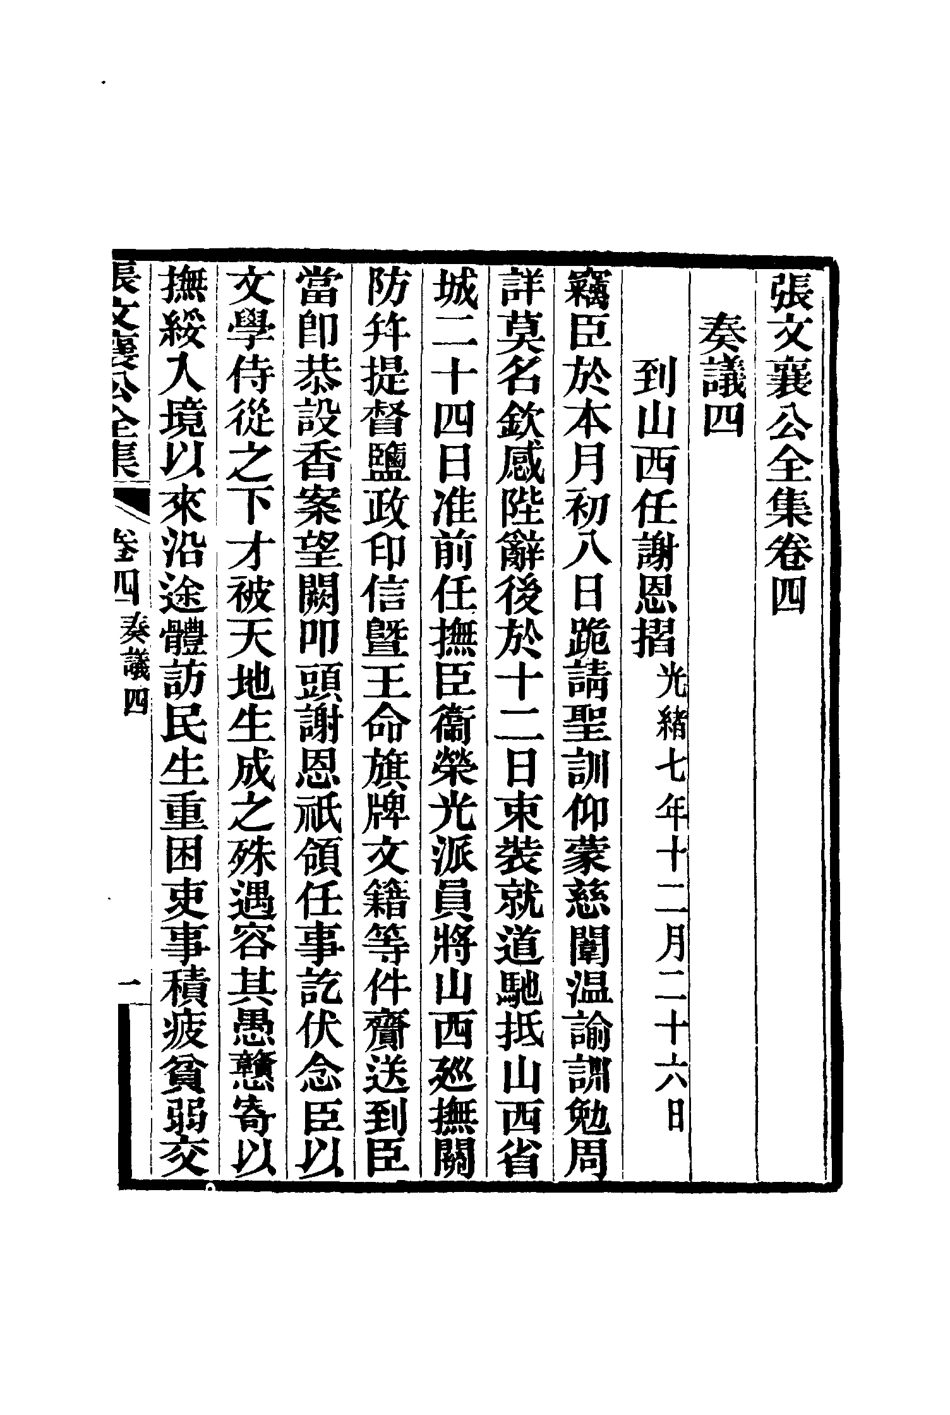 張文襄公全集卷四
奏議四
到山西任謝恩摺光緒七年十二月二十六日
竊臣於本月初八日跪請聖訓仰蒙慈闈温諭訓勉周
詳莫名欽感陛辭後於十二日束裝就道馳抵山西省
城二十四日准前任撫臣衞榮光派員將山西廵撫關
防幷提督鹽政印信曁王命旗牌文籍等件齎送到臣
當卽恭設香案望闕叩頭謝恩祇領任事訖伏念臣以
文學侍從之下才被天地生成之殊遇容其愚戇寄以
撫綏入境以來沿途體訪民生重困吏事積疲貧弱交
張文襄公全集 卷四 奏議四 一